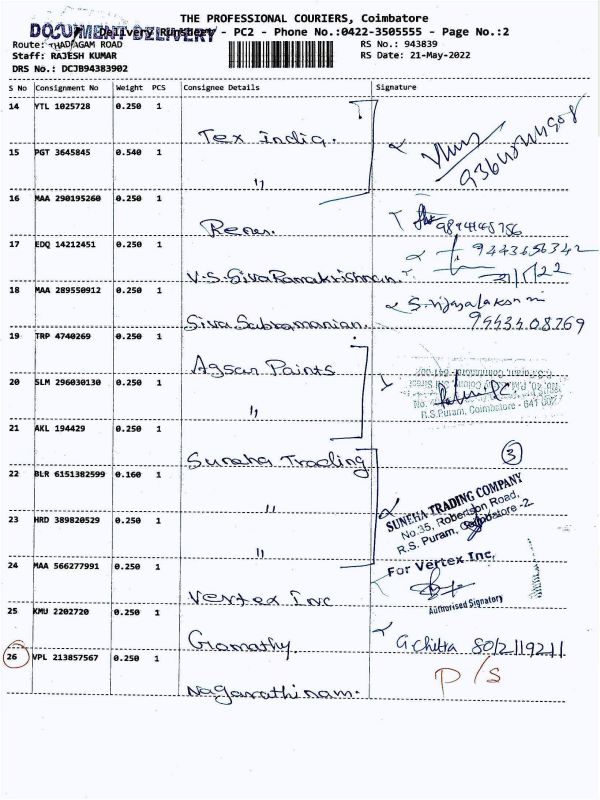 THE PROFESSIONAL COURIERS, Coimbatore
DOCUMENT DELIVERY
Delivery Runsheet - PC2 - Phone No.:0422-3505555 - Page No.:2
Route: THADAGAM ROAD
RS No.: 943839
Staff: RAJESH KUMAR
RS Date: 21-May-2022
DRS No.: DCJB94383902
S No Consignment No Weight PCS Consignee Details Signature
14 YTL 1025728 0.250 1
Tex India.
15 PGT 3645845 0.540 1
〃
16 MAA 290195260 0.250 1
17 EDQ 14212451 0.250 1
9443656342
V.S. Siva Ramakrishnan.
18 MAA 289550912 0.250 1
S. Vijayalakshmi
Siva Subramanian.
19 TRP 4740269 0.250 1
Agsar Paints
20 SLM 296030130 0.250 1
〃
R.S.Puram, Coimbatore - 641 002
21 AKL 194429 0.250 1
3
Suneha Trading
22 BLR 6151382599 0.160 1
〃
SUNEHA TRADING COMPANY
No.35, Robertson Road,
R.S. Puram, Coimbatore -2
23 HRD 389820529 0.250 1
〃
24 MAA 566277991 0.250 1
For Vertex Inc,
Vertex Inc
Authorised Signatory
25 KMU 2202720 0.250 1
Gomathy.
G. Chitra
26 VPL 213857567 0.250 1
P/S
Nagarathinam.